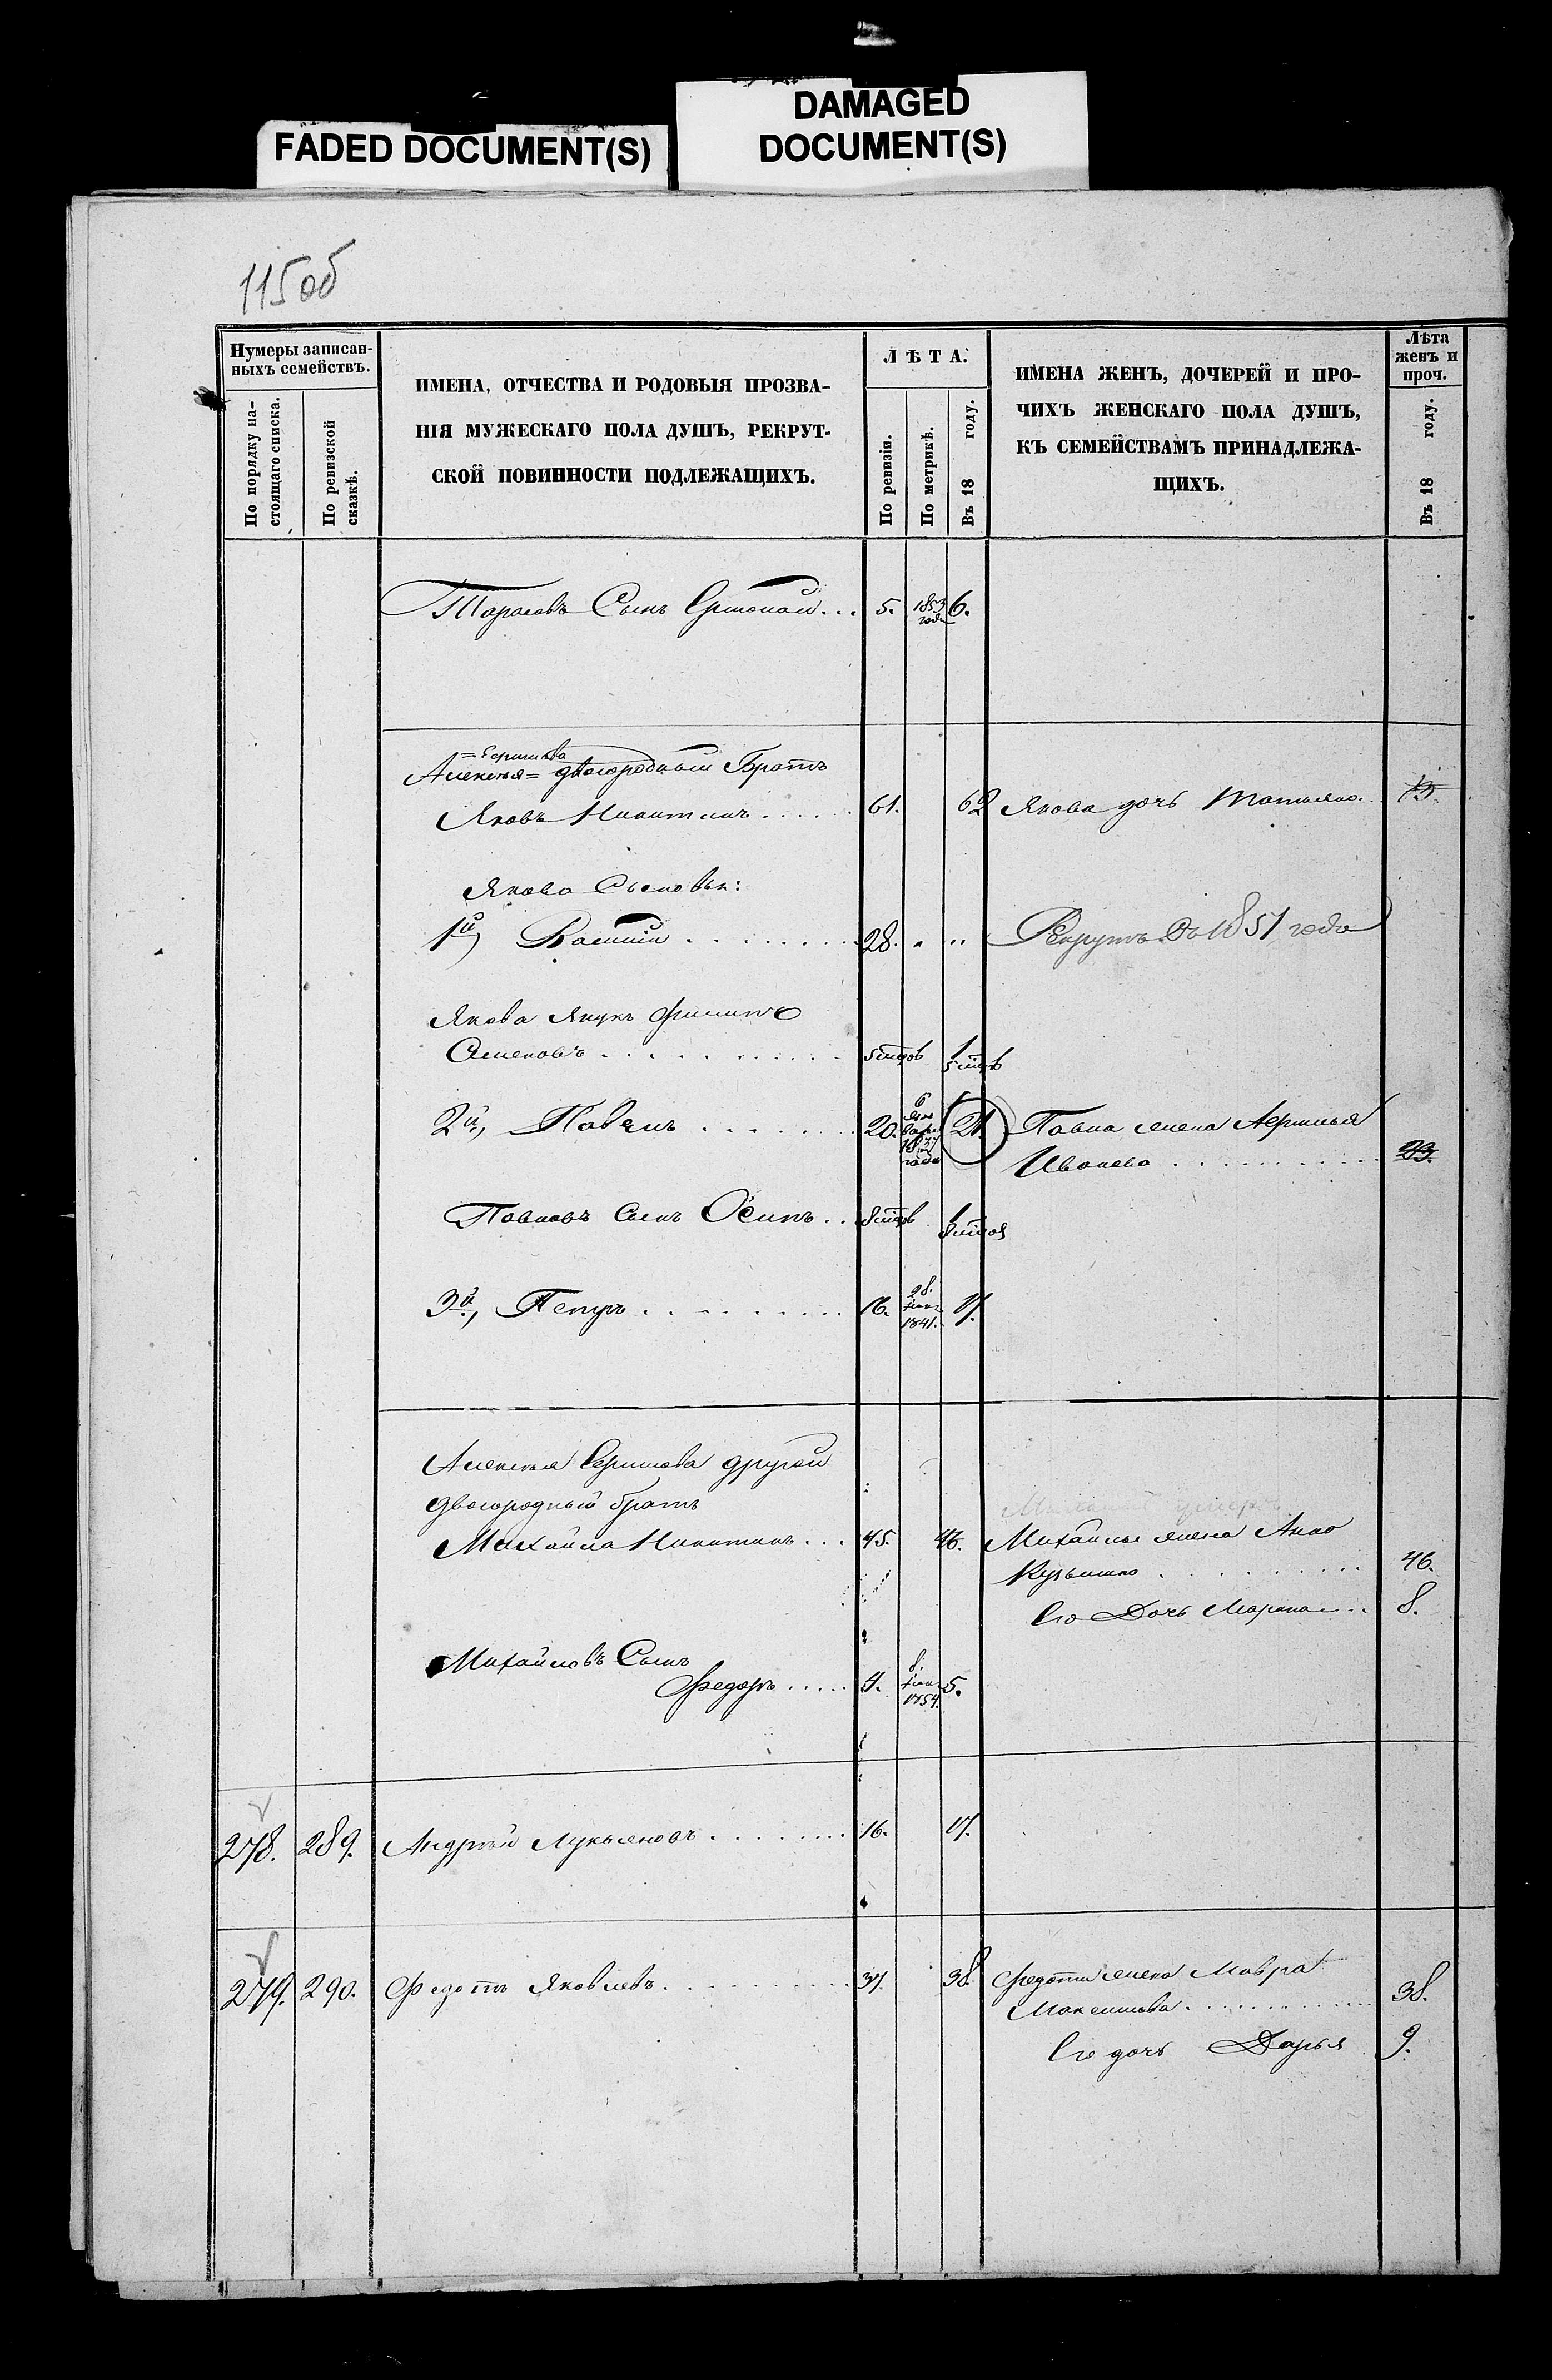 FADED DOCUMENT(S)
DAMAGED
DOCUMENT(S)
115об
Нумеры записан-
ныхъ семействъ.
По порядку на-
стоящаго списка.
По ревизской
сказкѣ.
ИМЕНА, ОТЧЕСТВА И РОДОВЫЯ ПРОЗВА-
НІЯ МУЖЕСКАГО ПОЛА ДУШЪ, РЕКРУТ-
СКОЙ ПОВИННОСТИ ПОДЛЕЖАЩИХЪ.
ЛѢТА.
По ревизіи.
По метрикѣ.
Въ 18 году.
ИМЕНА ЖЕНЪ, ДОЧЕРЕЙ И ПРО-
ЧИХЪ ЖЕНСКАГО ПОЛА ДУШЪ,
КЪ СЕМЕЙСТВАМЪ ПРИНАДЛЕЖА-
ЩИХЪ.
Лѣта
женъ и
проч.
Въ 18 году.
Тарасовъ Сынъ ... 5. 1853 года 6.
Алексѣя двоюродный Братъ
Яковъ Никитинъ ...... 61. 62 Якова дочь Татьяна. 13.
Якова Сыновья:
1й, Василий ........ 28. " " Рекрутъ Въ 1851 года
Якова Внукъ Филипъ
Семеновъ ..........
2й, Павелъ ....... 20. 6 Января 1837 года 21. Павла жена
Иванова ......... 23.
Павловъ Сынъ Осипъ ..
3й, Петръ ......... 16. 28. 1841. 17.
Алексѣя другой
двоюродный братъ
Михайла Никитинъ ... 45. 46. Михайлы жена Анна
Кузьмина ......... 46.
Его Дочь Марина ... 8.
Михайловъ Сынъ
Федоръ ..... 4. 8. 1854. 5.
278. 289. Андрѣй Лукьяновъ ........ 16. 17.
279. 290. Федотъ Яковлевъ .......... 37. 38. Федота жена Мавра
Максимова ............ 38.
Его дочь Дарья 9.